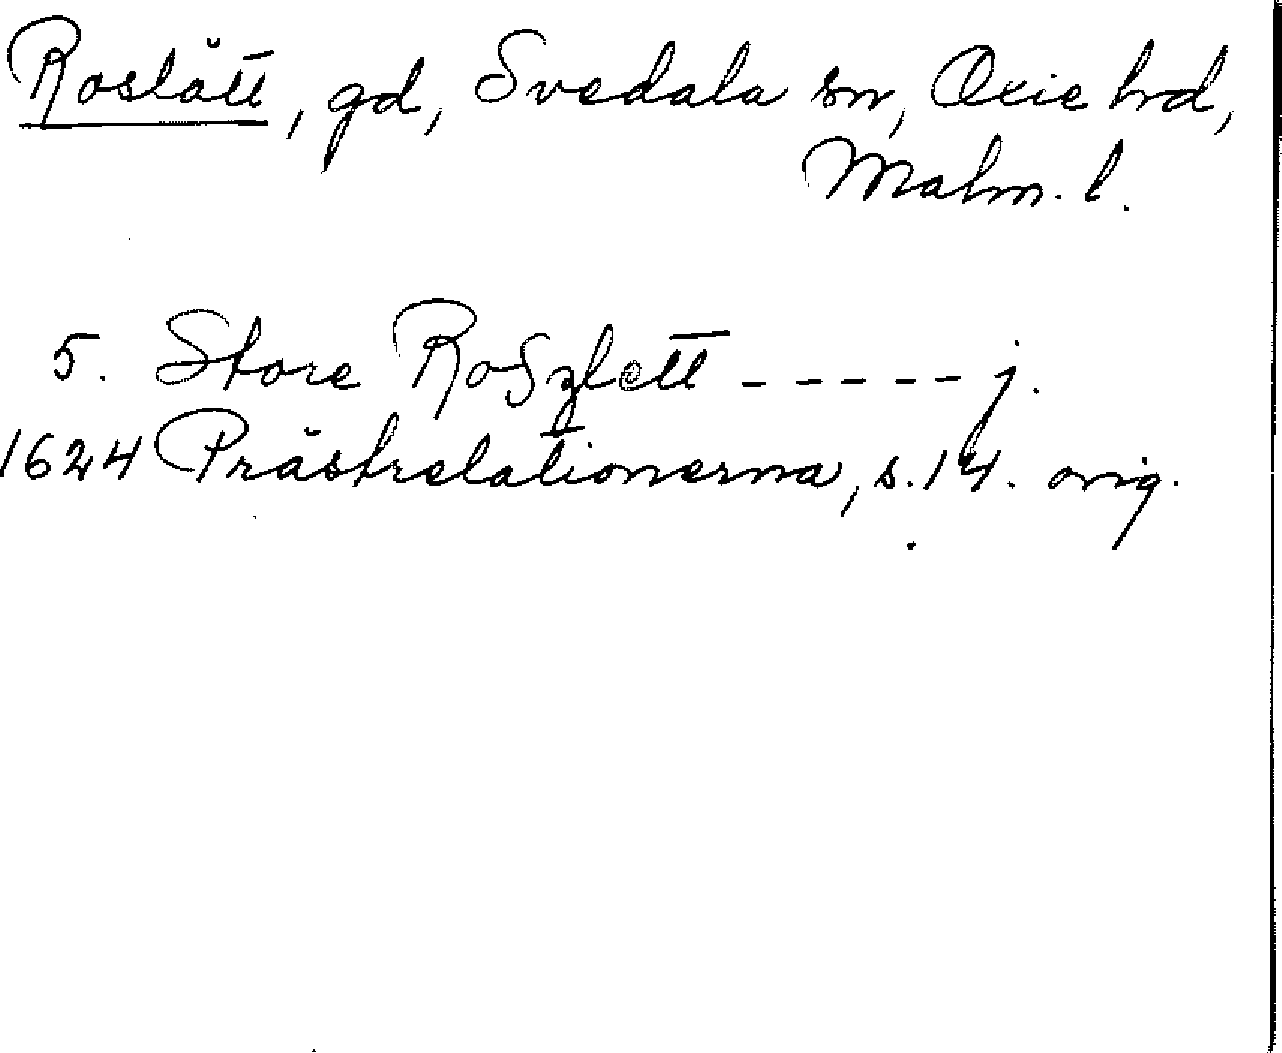 Roslätt, gd, Svedala sn, Oxie hd,
Malm. l.
5. Store Roszlett ----- j.
1624 Prästrelationerna, s. 14. orig.